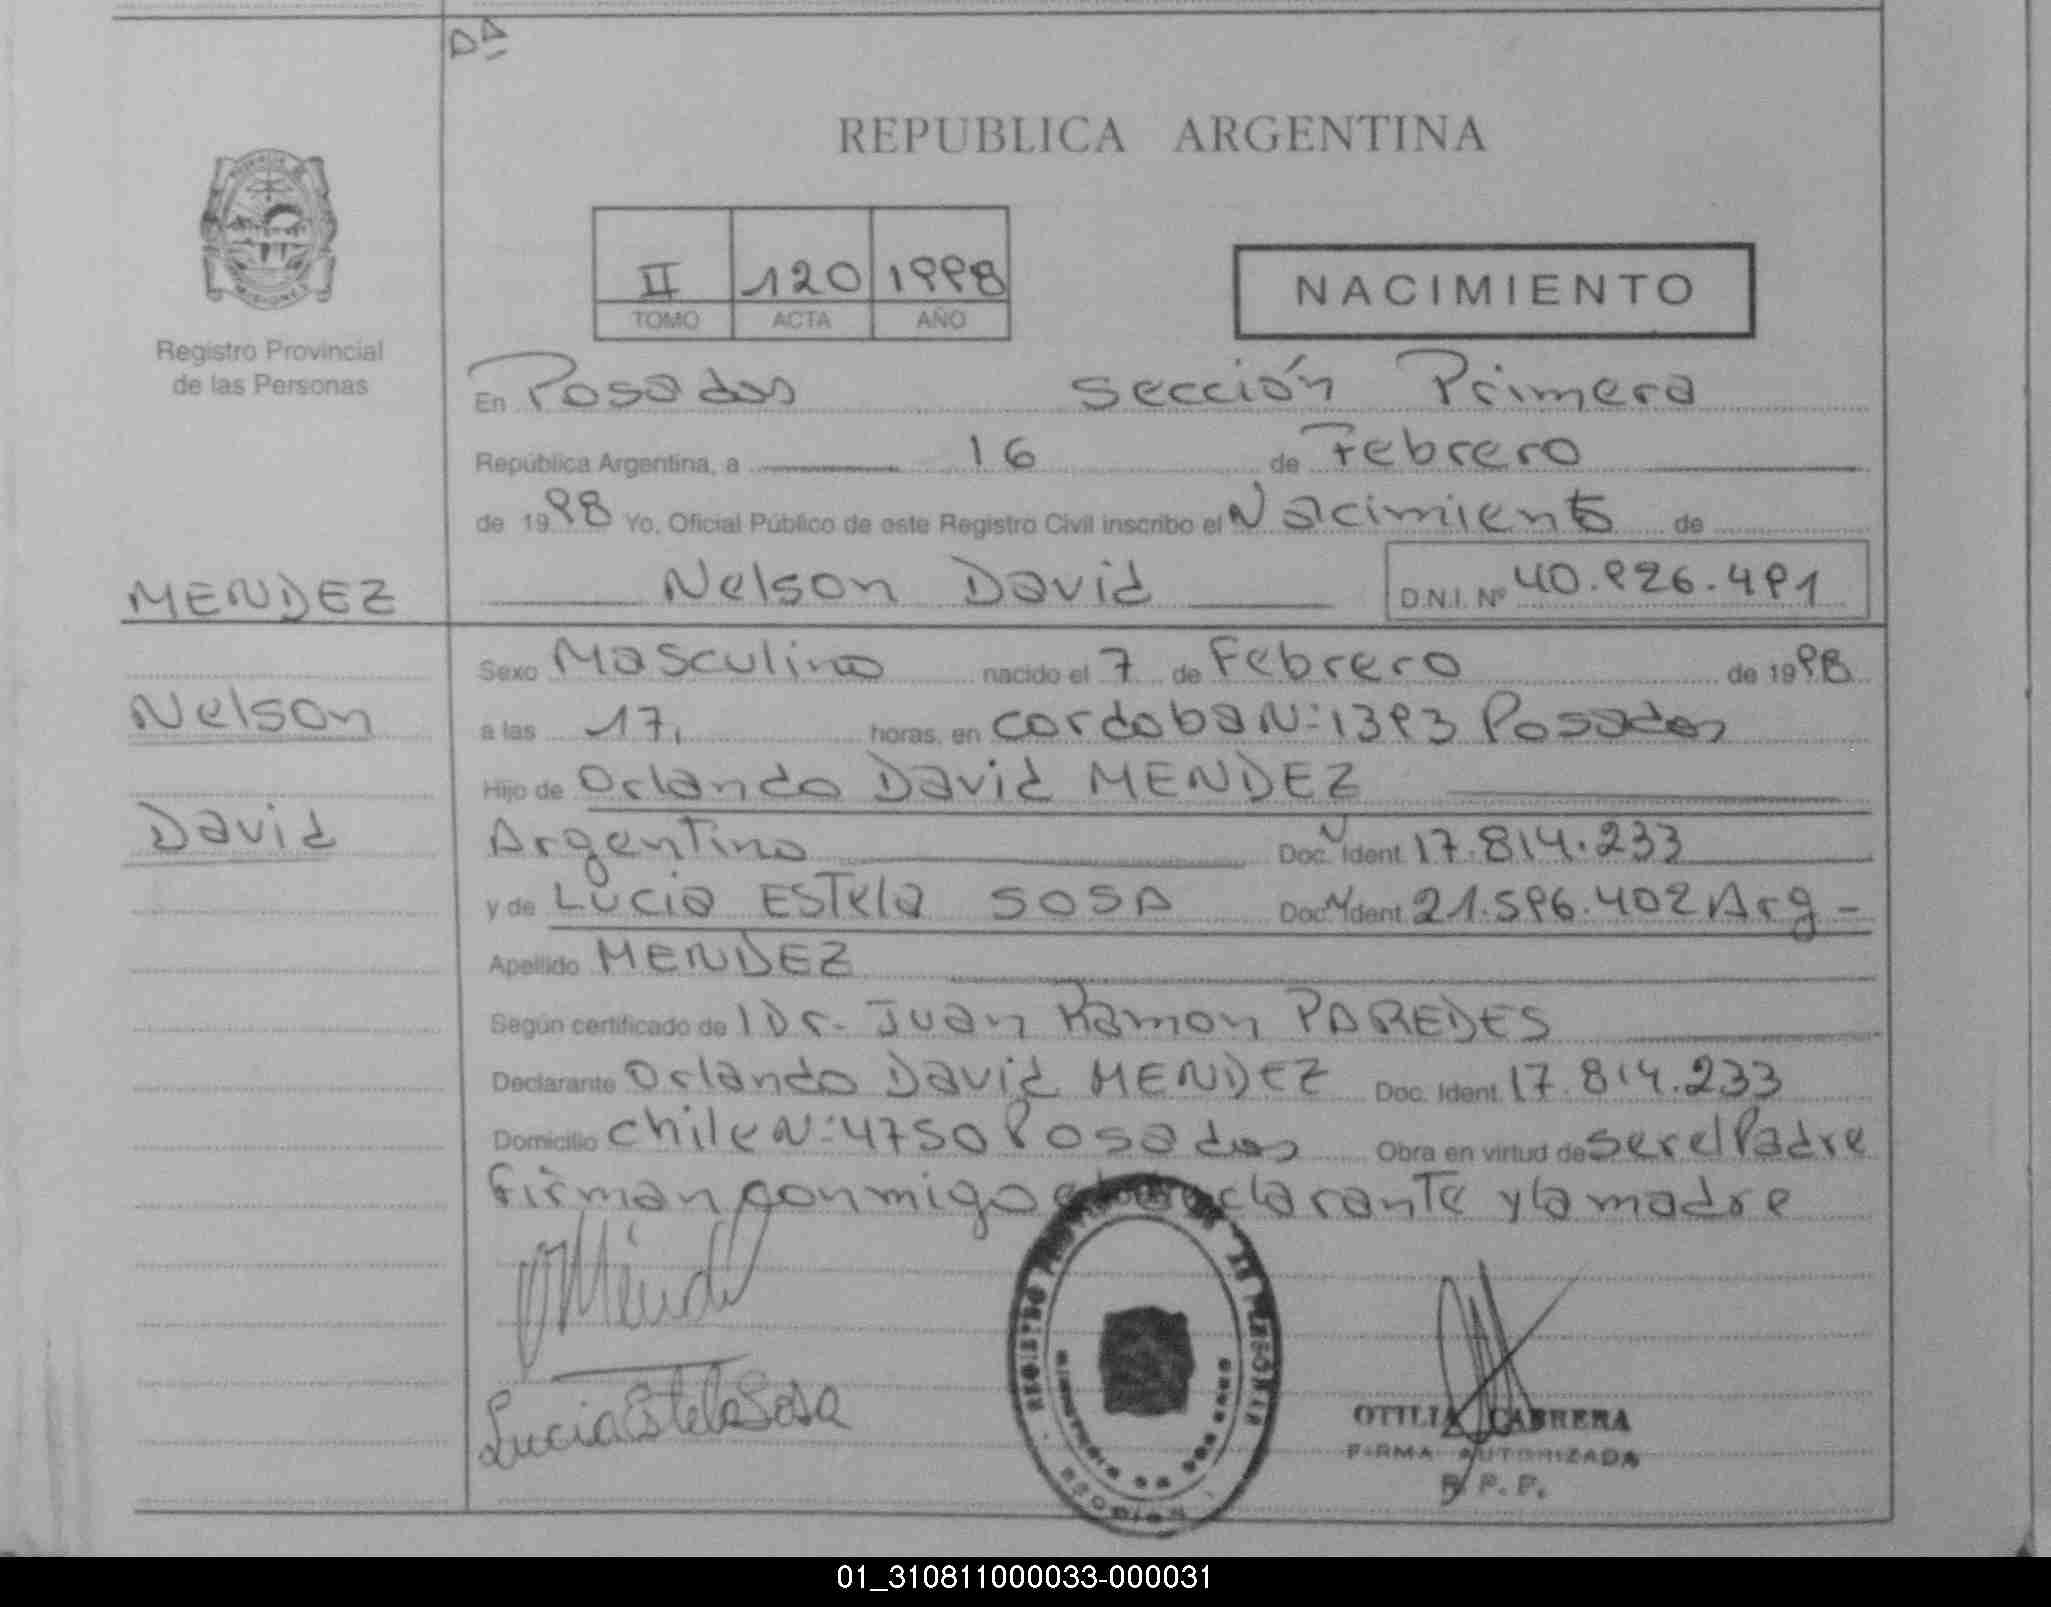 DA
REPUBLICA ARGENTINA
II 120 1998
TOMO ACTA AÑO
NACIMIENTO
MISIONES
Registro Provincial
de las Personas
En Posadas sección Primera
República Argentina, a 16 de Febrero
de 1998 Yo, Oficial Público de este Registro Civil inscribo el Nacimiento de
MENDEZ
Nelson David D.N.I. Nº 40.926.491
Sexo Masculino nacido el 7 de Febrero de 1998
Nelson
a las 17, horas, en cordoba N:1393 Posadas
Hijo de Orlando David MENDEZ
David
Argentino Doc. N Ident. 17.814.233
y de Lucia Estela SOSA Doc. N Ident 21.596.402 Arg-
Apellido MENDEZ
Según certificado de l Dr. Juan Ramon PAREDES
Declarante Orlando David MENDEZ Doc. Ident. 17.814.233
Domicilio chile N:4750 Posadas Obra en virtud de ser el Padre
firman conmigo declarante y la madre
OMéndez
Lucia Estela Sosa
REGISTRO DE PERSONAS
MINISTERIO DE
MISIONES
OTILIA CABRERA
FIRMA AUTORIZADA
R.P.P.
01_310811000033-000031